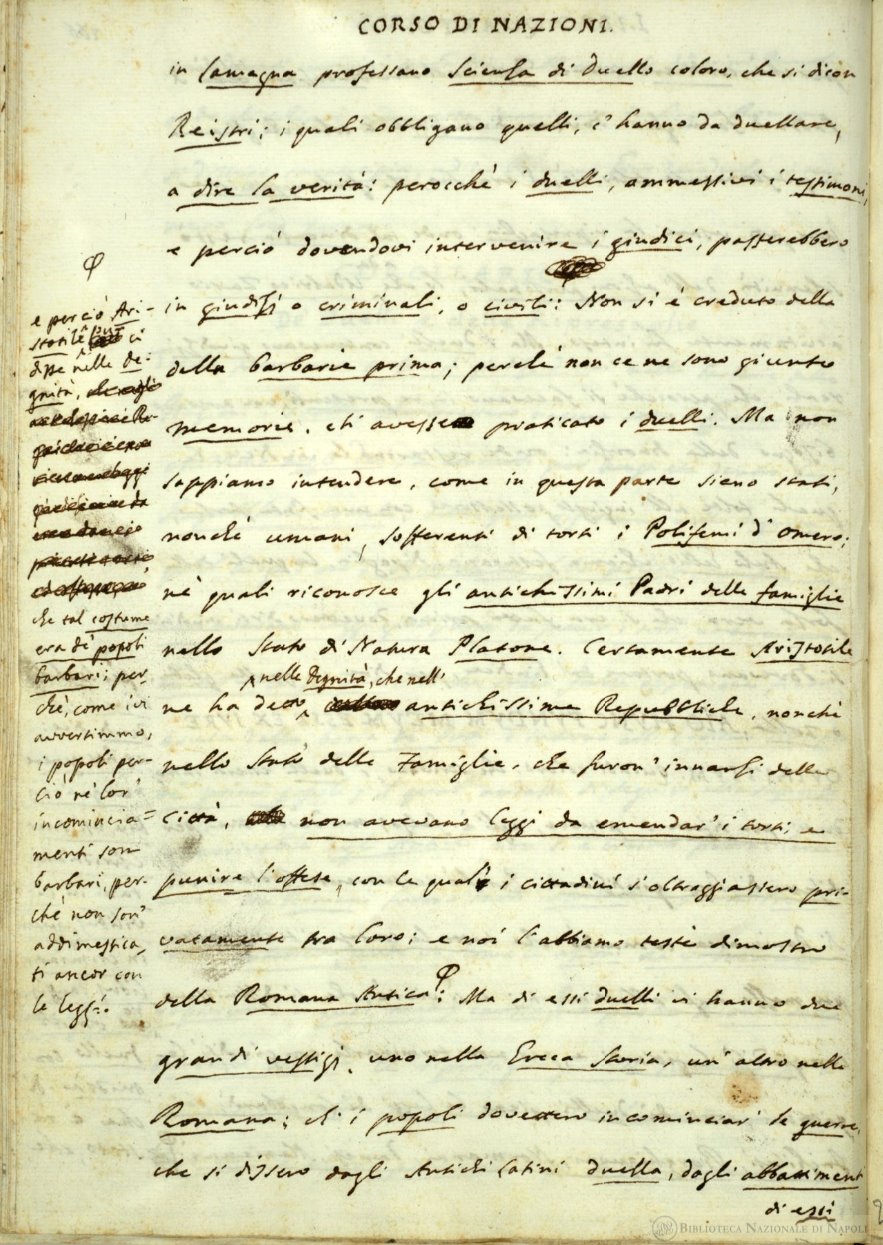 CORSO DI NAZIONI.
in Lamagna professano Scienza di Duello coloro, che si dicon
Reistri; i quali obbligano quelli, c' hanno da duellare,
a dire la verità: perocchè i duelli, ammessivi i testimoni,
e perciò dovendovi intervenire i giudici, passerebbero
in giudizj o criminali, o civili: Non si è creduto della
della barbarie prima; perchè non ce ne sono giunte
memorie, ch' avesse praticato i duelli. Ma non
sappiamo intendere, come in questa parte sieno stati,
nonchè umani, sofferenti di torti i Polifemi d' Omero;
ne' quali riconosce gli antichissimi Padri delle famiglie
nello Stato di Natura Platone. Certamente Aristotile
nelle Dignità, che nell'
ne ha detto antichissime Repubbliche, nonchè
nello Stato delle Famiglie, che furon' innanzi delle
città, non avevano leggi da emendar' i torti; e
punire l'offese, con le quali i cittadini s'oltraggiassero pri-
vatamente tra loro; e noi l'abbiamo testè dimostro
della Romana Antica φ: Ma di essi duelli vi hanno due
grandi vestigj, uno nella Greca Storia, un' altro nella
Romana; ch' i popoli dovettero incominciar' le guerre,
che si dissero dagli Antichi Latini duella, dagli abbattimenti
di essi
φ
e perciò Ari-
stotile ci
disse nelle De-
gnità,
che tal costume
era de' popoli
barbari; per-
chè, come ivi
avvertimmo,
i popoli per-
ciò ne' lor'
incomincia=
menti son
barbari, per-
chè non son'
addimestica-
ti ancor con
le leggi.
BIBLIOTECA NAZIONALE DI NAPOLI